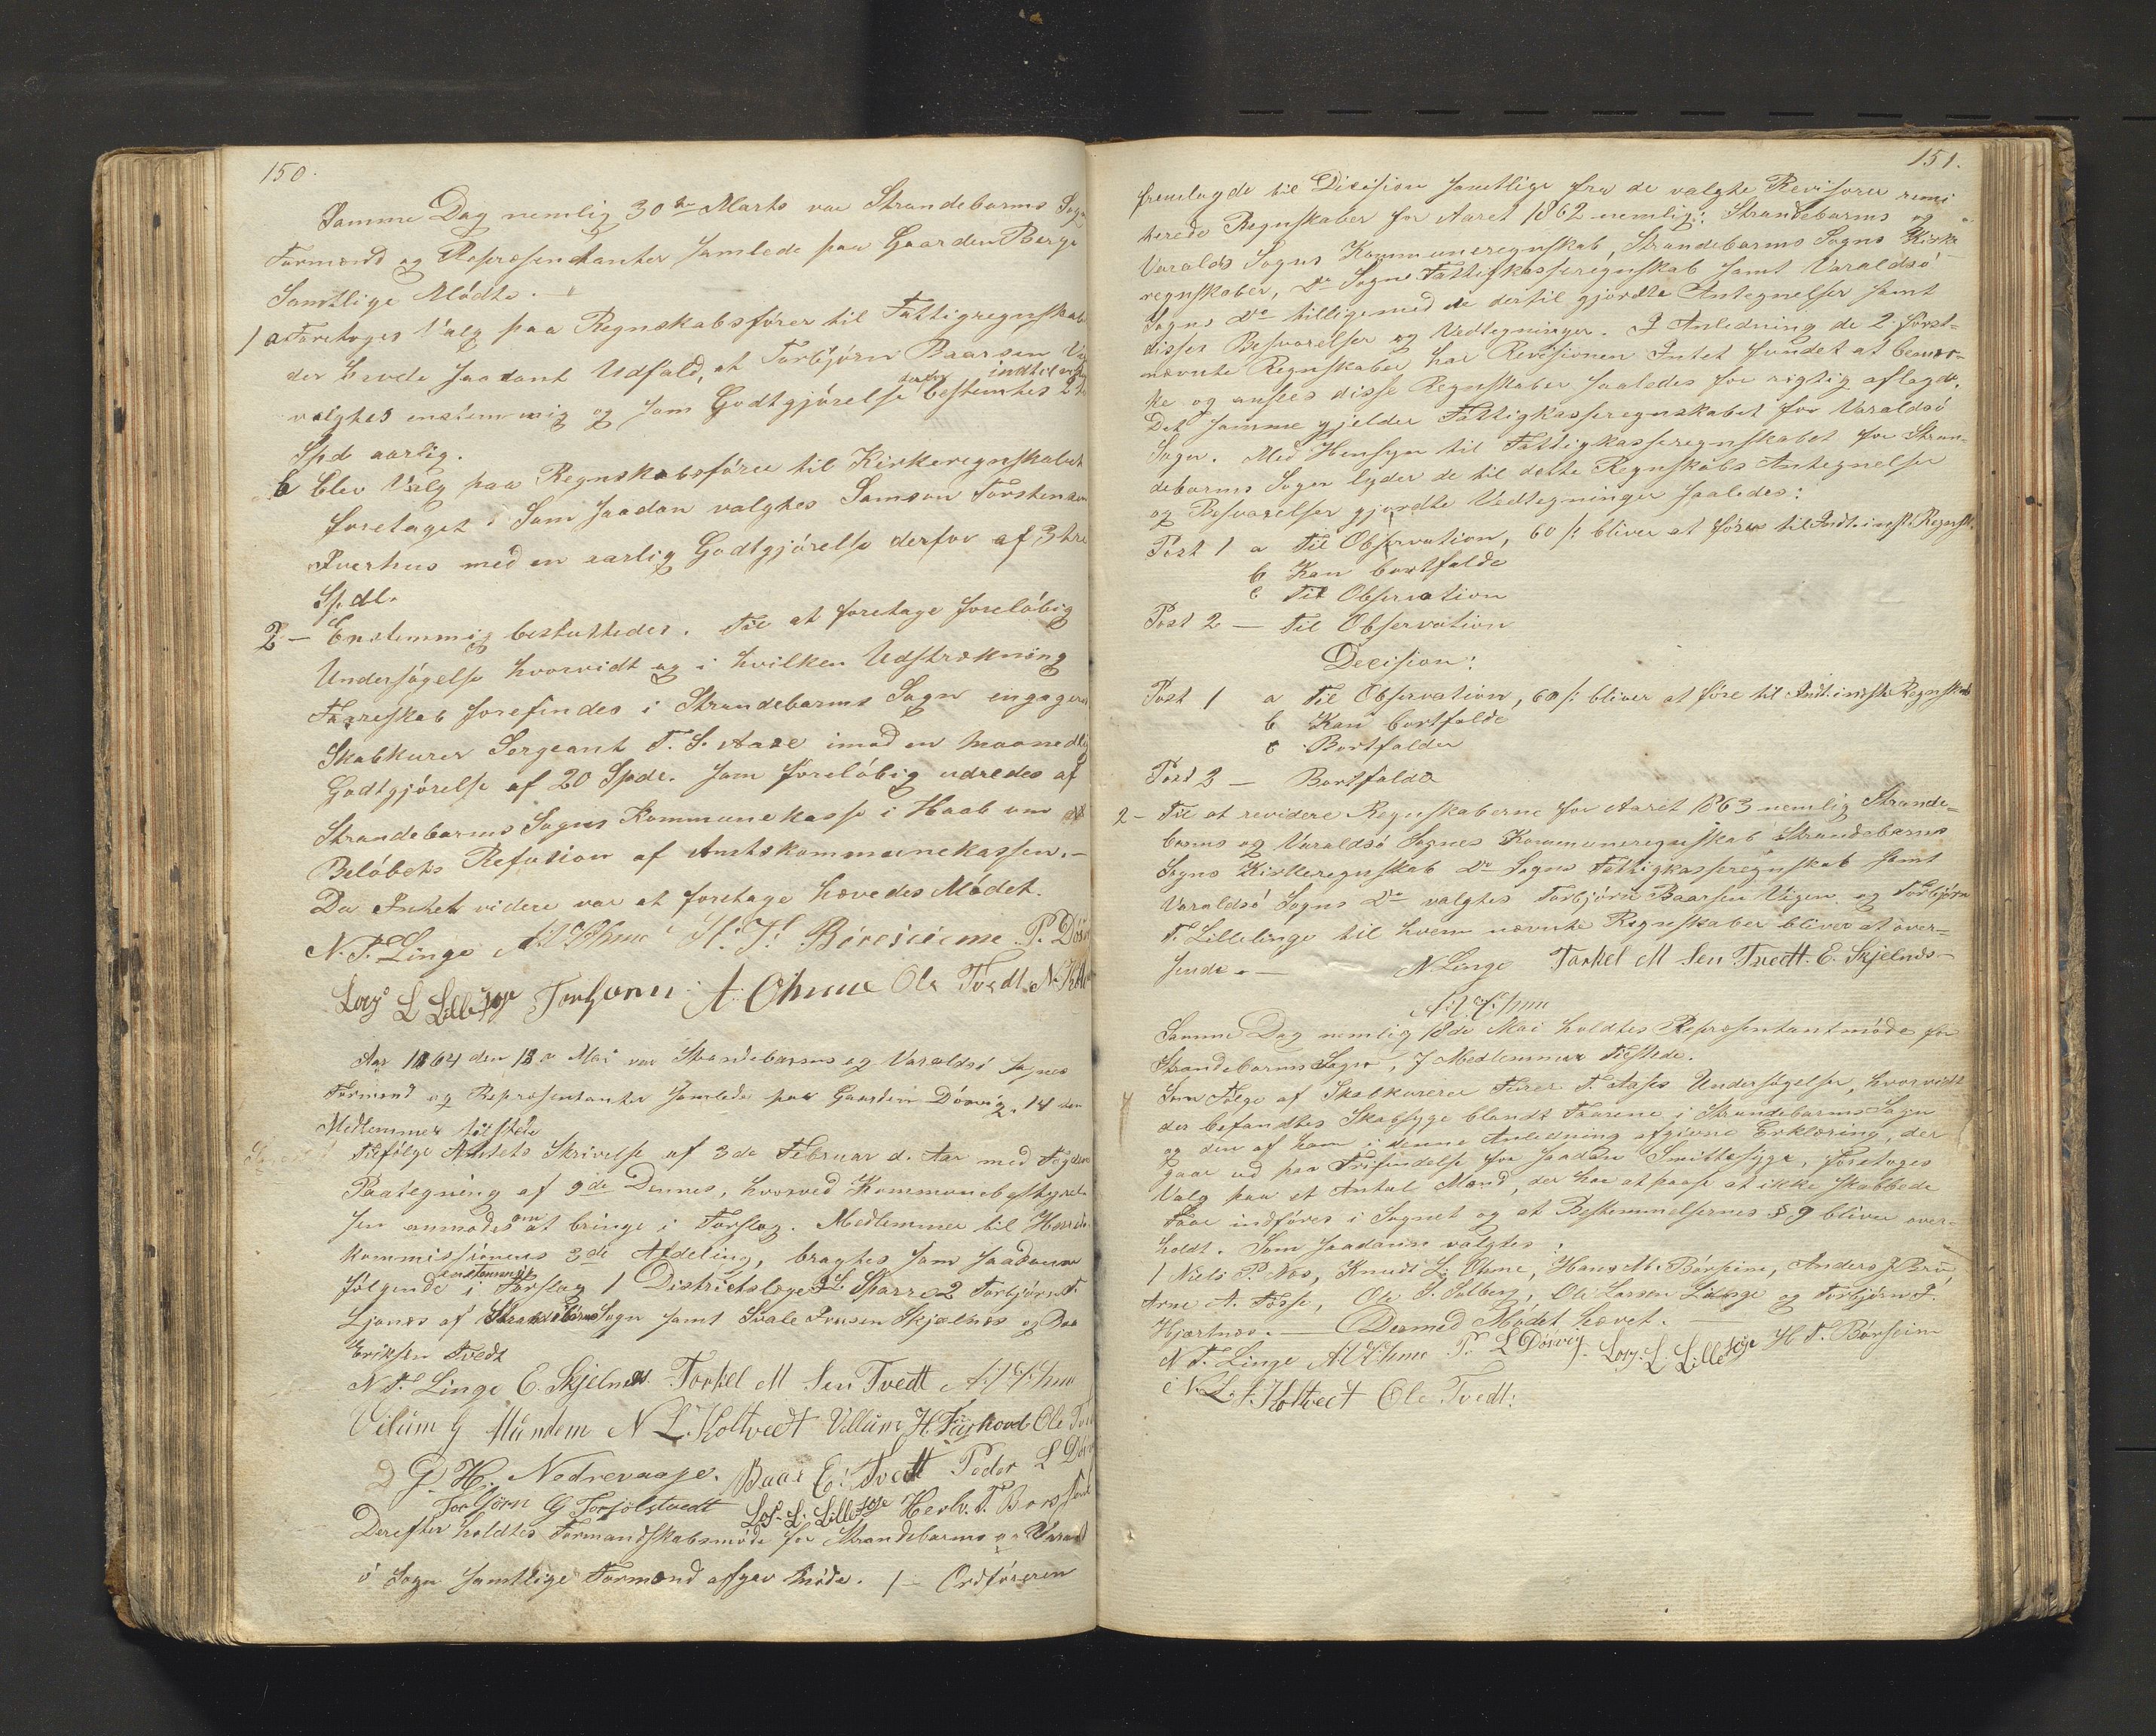 150.
Samme Dag nemlig 30te Marts var Strandebarms Sogns
Formænd og Repræsentanter samlede paa Gaarden Berge
Samtlige Mødte. —
1 a Foretoges Valg paa Regnskabsfører til Fattigregnskabet
der havde saadant Udfald, at Torbjørn Baarsen
valgtes enstemmig og som Godtgjørelse derfor bestemtes indtil 2
Spd aarlig.
b blev Valg paa Regnskabsfører til Kirkeregnskabet
foretaget. Som saadan valgtes Samson Torstensen
Tverhus med en aarlig Godtgjørelse derfor af 3 tre
Spdl.
2 — Enstemmig besluttedes. Til at foretage foreløbig
Undersøgelse hvorvidt og i hvilken Udstrækning
Faareskab forefindes i Strandebarms Sogn engageres
Skabkurer Sergeant T. S. Aase imod en maanedlig
Godtgjørelse af 20 Spdl. som foreløbig udredes af
Strandebarms Sogns Kommunekasse i Haab om
Beløbets Refusion af Amtskommunekassen. —
Da Intet videre var at foretage hævedes Mødet.
N. T. Linge H. T. P.
Lars L Lillesøe A. Ohme Ole Tvedt N.
Aar 1864 den 18de Mai var Strandebarms og Varaldsø Sognes
Formænd og Repræsentanter samlede paa Gaarden Døsvig. 14 den
Medlemmer tilstede
Tilfølge Amtets Skrivelse af 3de Februar d. Aar med Fogdens
Paategning af 9de Dennes, hvorved Kommunebestyrel-
sen anmodes om at bringe i Forslag. Medlemmer til Herreds
kommissionens 3de Afdeling, bragtes som saadanne
følgende enstemmig i Forslag 1 Districtslæge Sparre 2 Torbjørn T.
Ljones af Strandebarms Sogn samt Svale Iversen Skjælnæs og Baar
Eriksen Tvedt
N T. Linge E. Skjelnæs. Torkel M Sen Tvedt
Vilum G Mundem N L. Holtvedt Villum H. Ole Tvedt
G. H. Nedrevaage. Baar E. Tvedt Peder L
Torbjørn G Lars. L. Lillesøe Herlv. T.
Derefter holdtes Formandskabsmøde for Strandebarms og Varalds
ø Sogn samtlige Formænd afgav Møde. 1 — Ordføreren
151.
fremlagde til Dicision samtlige fra de valgte Revisorer remi
terede Regnskaber for Aaret 1862 nemlig: Strandebarms og
Varalds Sogns Kommuneregnskab, Strandebarms Sogns Kirke
regnskaber, Do Sogns Fattigkasseregnskab samt Varaldsø
Sogns Do tilligemed de dertil gjordte Antegnelser samt
disses Besvarelser og Vedtegninger. I Anledning de 2 først-
nævnte Regnskaber har Revisionen Intet fundet at bemær-
ke og ansees disse Regnskaber saaledes for rigtig aflagde.
Det samme gjelder Fattigkasseregnskabet for Varaldsø
Sogn. Med Hensyn til Fattigkasseregnskabet for Stran-
debarms Sogn lyder de til dette Regnskabs Antegnelser
og Besvarelser gjordte Vedtegninger saaledes:
Post 1 a Til Observation, 60 s: bliver at føre til Indt. i næste Regnsk.
b Kan bortfalde
c Til Observation
Post 2 — Til Observation
Decision:
Post 1 a Til Observation, 60 s: bliver at føre til Indt. i næste Regnskab
b Kan bortfalde
c Bortfalder
Post 2 — Bortfalde
2 — Til at revidere Regnskaberne for Aaret 1863 nemlig Strande-
barms og Varaldsø Sognes Kommuneregnskab Strandebarms
Sogns Kirkeregnskab Do Sogns Fattigkasseregnskab samt
Varaldsø Sogns Do valgtes Torbjørn Baarsen Vigen og Torbjørn
T. Lillelinge til hvem nævnte Regnskaber bliver at over-
sende. — N Linge Torkel M Sen Tvedt. E. Skjelnæs
Samme Dag nemlig 18de Mai holdtes Repræsentantmøde for
Strandebarms Sogn, 7 Medlemmer tilstede.
Som Følge af Skabkurerer Furer T. Aases Undersøgelse, hvorvidt
der befandtes Skabsyge blandt Faarene i Strandebarms Sogn
og den af ham i denne Anledning afgivne Erklæring, der
gaar ud paa Frifindelse for saadan Smittesyge, foretoges
Valg paa et Antal Mænd, der har at paase at ikke skabbede
Faar indføres i Sognet og at Bestemmelsernes § 9 bliver over-
holdt. Som saadanne valgtes:
1 Niels P. Næs, Knud L. Ohme, Hans M. Børsem, Anders J
Arne A. Fosse, Ole P. Solberg, Ole Larsen og Torbjørn J.
Hjartnæs. — Dermed Mødet hævet. —
N T. Linge P. L Døsvig. Lars. L. Lillesøe H T. Børseim
N L. Holtvedt Ole Tvedt: